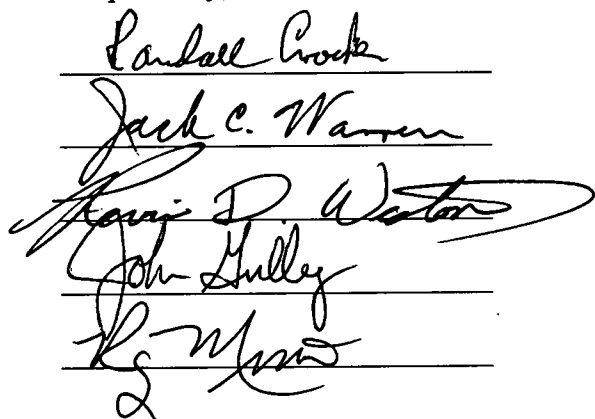 Randall Crocker
Jack C. Warren
Kevin D. Weston
John Gulley